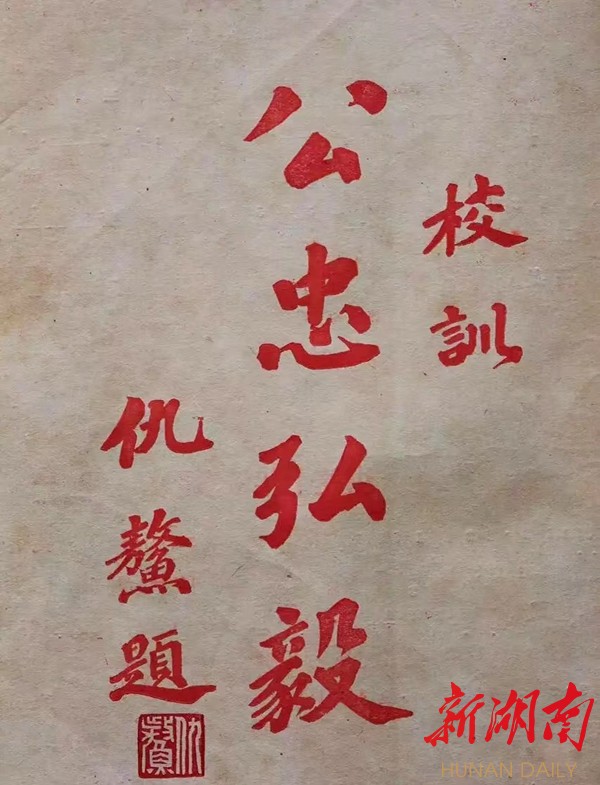 校訓
公忠弘毅
仇鰲題
新湖南
HUNAN DAILY